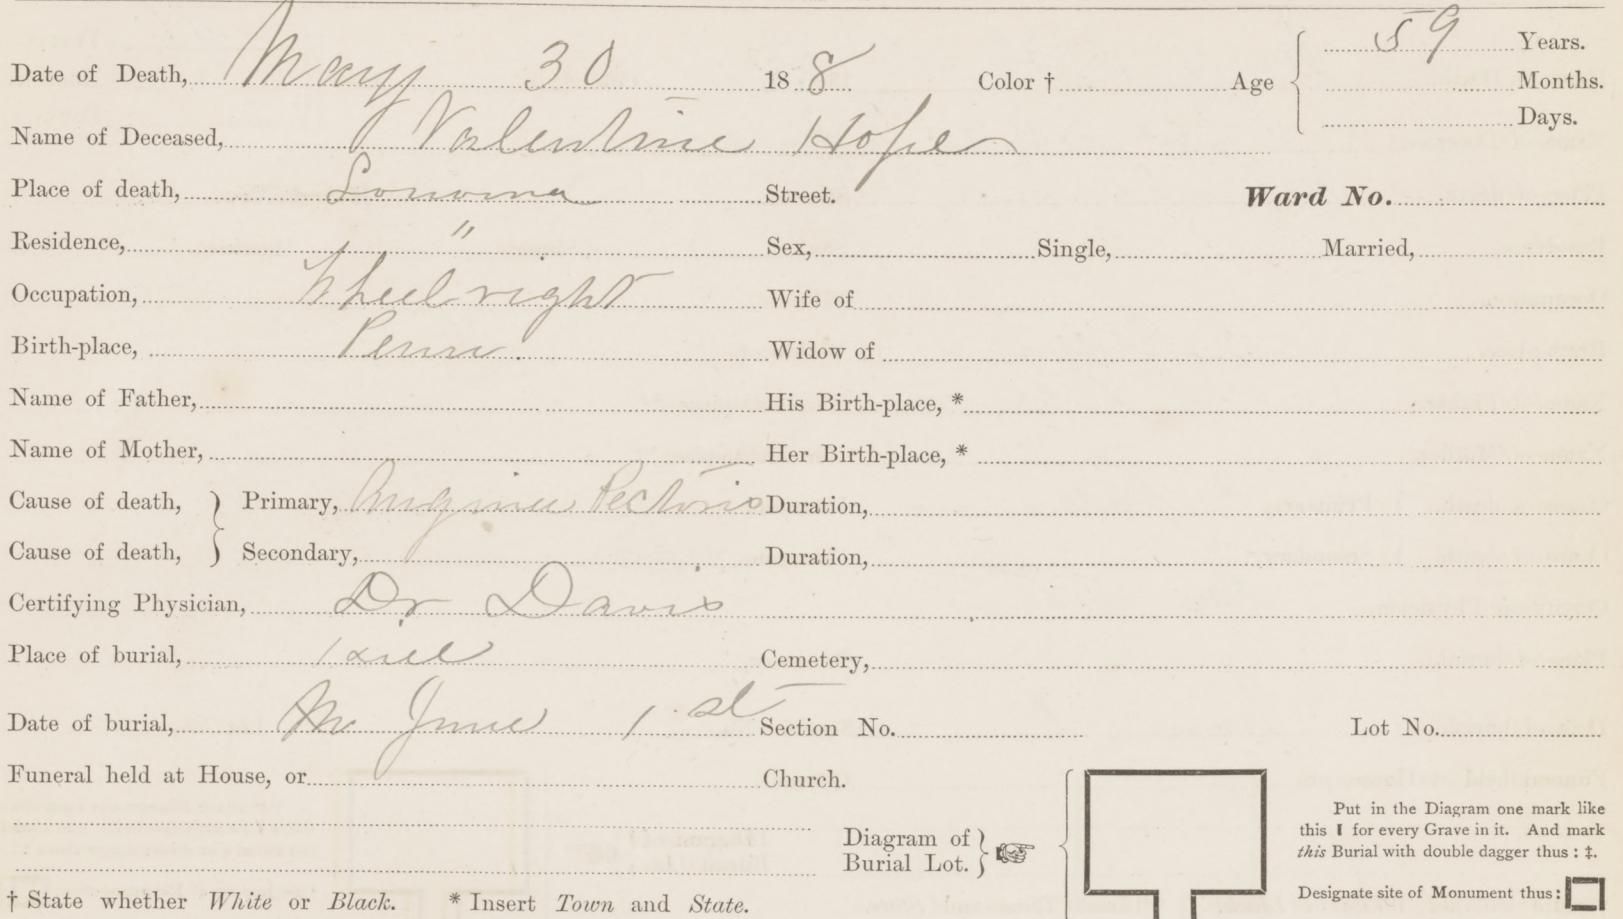 Date of Death, May 30 18 8 Color † Age 59 Years.
Months.
Days.
Name of Deceased, Valentine Hoper
Place of death, Sonoma Street. Ward No.
Residence, " Sex, Single, Married,
Occupation, Wheelright Wife of
Birth-place, Penn. Widow of
Name of Father, His Birth-place, *
Name of Mother, Her Birth-place, *
Cause of death, } Primary, Angina Pectoris Duration,
Cause of death, } Secondary, Duration,
Certifying Physician, Dr Davis
Place of burial, Cemetery,
Date of burial, June 1st Section No. Lot No.
Funeral held at House, or Church.
Diagram of
Burial Lot.
Put in the Diagram one mark like
this I for every Grave in it. And mark
this Burial with double dagger thus : ‡.
Designate site of Monument thus :
† State whether White or Black. * Insert Town and State.